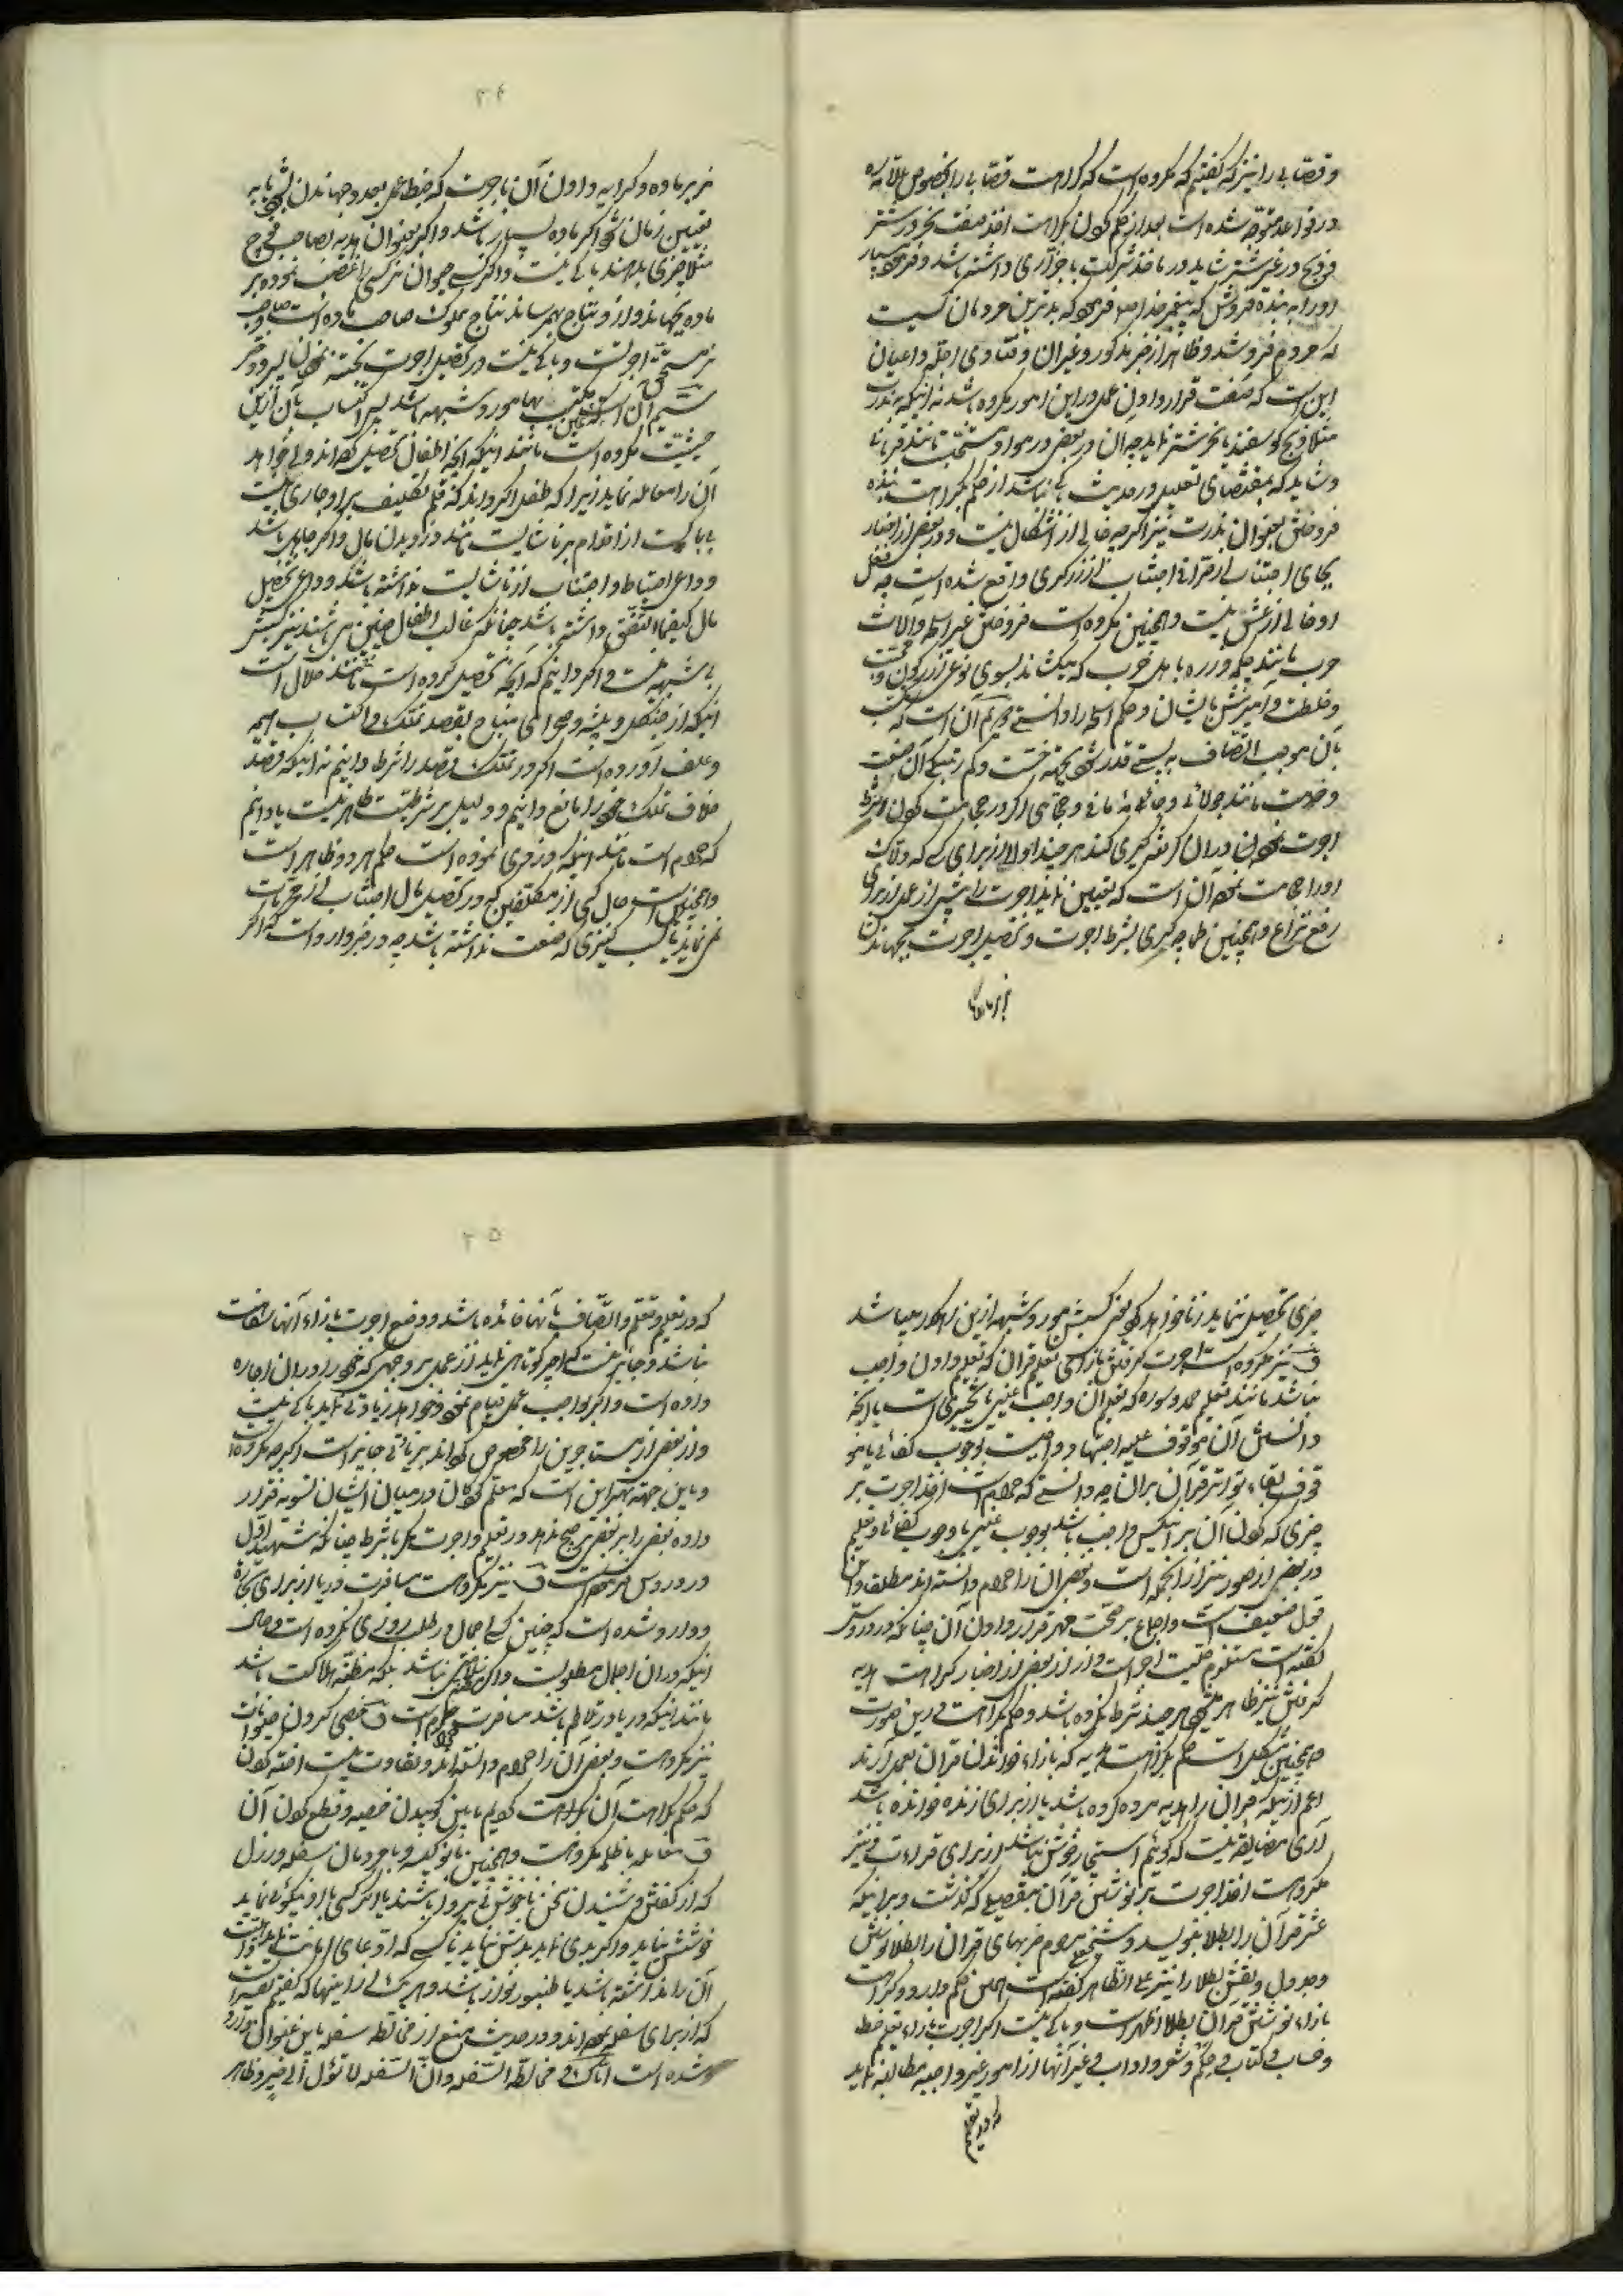 و قصابی را نیز که گفتیم که مکروه است که کراهت قصابی را بخصوص
در قواعد متوجه شده است بعد از حکم کردن بکراهت اخذ صنعت نحر در شتر
و ذبح در غیر شتر شاید در ماخذ شرکت با جزاری داشته باشد و
او را به بنده فروش که پیغمبر خدا ص فرموده که بدترین مردمان کسیست
که مردم فروشد و ظاهر از خبر مذکور و غیر آن و فتاوی اجله و اعیان
این است که صنعت قرار دادن عمل در این امور مکروه باشد نه اینکه به ندرت
مثلا ذبح گوسفند یا نحر شتر نماید چه آن در بعضی موارد مستحب مانند قربانی
و شاید که بمقتضای تعلیل در حدیث باکی نباشد از حکم بکراهت بنده
فروختن بعنوان ندرت نیز اگرچه خالی از اشکال نیست و در بعضی از اخبار
بجای اجتناب از قراء اجتناب از زرگری واقع شده است چه فعل
او خالی از غش نیست و همچنین مکروه است فروختن غیر اسلحه و آلات
حرب مانند چکمه و زره باهل حرب که میکشاند بسوی نوعی از
و خلطت و آمیزش بایشان و حکم اسلحه را دانستی
بآن موجب اتصاف به پستی قدر شود بجهة خست و کم رتبگی آن صنعت
و حرفت مانند جولائی و حجامی اگر در حجامت کردن شرط
اجرت بخصوص در آن کرفته گیری کند هر چند اولی از برای کسی که
او را حجامت نموده آن است که تعیین نماید اجرت را پیش از عمل از برای
رفع نزاع و همچنین بشرط اجرت و تحصیل اجرت بجهاندن
نر بر ماده
۲۴
نر بر ماده و کرایه دادن آن باجرت که ضبط عمل بعدد جهاندن شود یا به
تعیین زمان شود اگر ماده بسیار باشد و اگر بعنوان هدیه بصاحب
مثلا چیزی بدهند باکی نیست و اگر کسی حیوان نر کسی را غصب نموده بر
ماده بجهاند و از او نتاج بهمرساند نتاج مملوک صاحب ماده است و صاحب
نر مستحق اجرتست و باکی نیست در تحصیل اجرت
بهامور و شبهه باشد پس اکتساب بآن ازین
حیثیت مکروه است مانند اینکه آنچه اطفال تحصیل کرده‌اند ولی خواهد
آن را معامله نماید زیرا که طفل اگر داند که قلم تکلیف بر او جاری نیست
بی‌باکست از اقدام بر ناشایست مانند دزدیدن مال و اگر جاهل باشد
و داعی احتیاط و اجتناب از ناشایست نداشته باشد و داعی تحصیل
مال کیفما اتفق داشته باشد چنانکه غالب اطفال چنین می‌باشند نیز کسبش
بی‌شبهه نیست و اگر دانیم که آنچه تحصیل کرده است مانند حلال است
اینکه از جنگل و بیشه و صحرای مباح بقصد تملک و اکتساب هیمه
و علف آورده است اگر در تملک قصد را شرط دانیم نه اینکه قصد
خلاف تملک را مانع دانیم و دلیل بر شرطیت ظاهر نیست یا دانیم
که حرام است مانند اینکه دزدی نموده است حکم هر دو ظاهر است
و همچنین است حال کسی از مکلفین که در تحصیل مال اجتناب از محرمات
نمی‌نماید یا کسب کنیزی که صنعت نداشته باشد چه در خبر وارد است که اگر
چیزی تحصیل ننماید زنا خواهد کرد یعنی کسبش مورد شبهه ازین راهگذر میباشد
ف نیز مکروه است اجرت گرفتن بازای تعلیم قرآن که تعلیم دادن واجب
نباشد مانند تعلیم حمد و سوره که تعلیم آن واجب عینی یا تخییری است یا آنچه
دانستن آن موقوف علیه اجتهاد و واجبست بوجوب کفائی یا
قوف بقاء تواتر قرآن بر آن چه دانستی که حرام است اخذ اجرت بر
چیزی که کردن آن بر آنکس واجب باشد بوجوب عینی یا وجوب کفائی و تعلیم
در بعضی از صور نیز از آنجمله است و بعضی آن را حرام دانسته‌اند مطلقا و این
قول ضعیف است و اجماع بر صحت مهر قرار دادن آن چنانکه در دروس
گفته است مستلزم حلیت اجر است و از بعضی از اخبار کراهت هدیه
گرفتن نیز ظاهر میشود هر چند شرط نکرده باشد و حکم بکراهت در این صورت
همچنین مشکل است حکم بکراهت هدیه که بازاء خواندن قرآن بعمل آرند
اعم از اینکه قرآن را هدیه مرده کرده باشد یا از برای زنده خوانده باشد
آری مضایقه نیست که گوئیم استیجارش خوش نباشد از برای قراءت و نیز
مکروهست اخذ اجرت بر نوشتن قرآن بتفصیلی که گذشت و بر اینکه
عشر قرآن را بطلا بنویسد و شیخ مرحوم حزبهای قرآن را بطلا نوشتن
و جدول و نقش بطلا را نیز علی الظاهر گفته است همین حکم دارد و کراهت
بازاء نوشتن قرآن بطلا اظهر است و باکی نیست اگر اجرت بازاء تعلیم خط
و حساب و کتاب و حکم و شعر و آداب و غیر آنها از امور غیر واجبه مطالبه نماید
که در تعلیم
۲۵
که در تعلیم و تعلم و اتصاف بآنها فائده باشد و وضع اجرت بازاء آنها سفاهت
نباشد و جایز نیست که اجیر کوتاهی نماید از عملی بر وجهی که خود را در آن اجاره
داده است و اگر بواجب عمل قیام نموده و خواهد زیادتی نماید باکی نیست
و از بعضی از مستاجرین را مخصوص گرداند بزیادتی جایز است اگرچه مکروه است
و باین جهة بهتر این است که معلم کودکان در میان ایشان تسویه قرار
داده بعضی را بر بعضی ترجیح ندهد در تعلیم و اجرت مگر با شرط چنانکه شهید اول
در دروس فرموده است ف نیز مکروهست مسافرت دریا از برای تجارة
و وارد شده است که چنین کسی اجمال در طلب روزی نکرده است و حال
اینکه در آن اجمال مطلوبست و اگر مظنه سلامتی نباشد بلکه مظنه هلاکت باشد
مانند اینکه دریا در تلاطم باشد مسافرت حرام است ف خصی کردن حیوانات
نیز مکروهست و بعضی آن را حرام دانسته‌اند و تفاوت نیست اخته کردن
که حکم بکراهت آن یا حرمت کردیم مابین کوبیدن خصیه و قطع کردن آن
ف معامله با ظلمه مکروهست و همچنین با نوکیسه و با مردمان سفله و رذل
که از گفتن و شنیدن سخن ناخوش بی‌پروا باشند یا اگر کسی با او نیکوئی نماید
خوشش نیاید و اگر بدی نماید بدش نیاید یا کسی که ادعای امانت نماید
آن را نداشته باشد یا طنبور نواز باشد و هر یک از اینها که گفتیم تفسیریست
که از برای سفله نموده‌اند و در حدیث منع از مخالطه سفله باین عنوان وارد
شده است ایاک و مخالطة السفلة و ان السفلة لا تؤل الی خیر و ظاهر